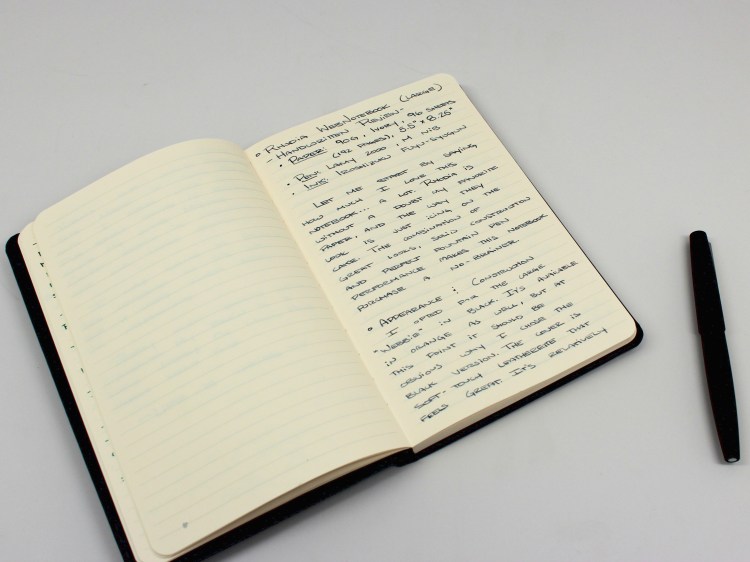 • RHODIA WEBNOTEBOOK (LARGE)
- HANDWRITTEN REVIEW -
• PAPER: 90G, IVORY, 96 SHEETS
(192 PAGES), 5.5" x 8.25"
• PEN: LAMY 2000 M NIB
• INK: IROSHIZUKU FUYU-SYOGUN
LET ME START BY SAYING
HOW MUCH I LOVE THIS
NOTEBOOK... A LOT. RHODIA IS
WITHOUT A DOUBT MY FAVORITE
PAPER, AND THE WAY THEY
LOOK IS JUST ICING ON THE
CAKE. THE COMBINATION OF
GREAT LOOKS, SOLID CONSTRUCTION
AND PERFECT FOUNTAIN PEN
PERFORMANCE MAKES THIS NOTEBOOK
PURCHASE A NO-BRAINER.
• APPEARANCE & CONSTRUCTION
I OPTED FOR THE LARGE
"WEBBIE" IN BLACK. IT'S AVAILABLE
IN ORANGE AS WELL, BUT AT
THIS POINT IT SHOULD BE
OBVIOUS WHY I CHOSE THE
BLACK VERSION. THE COVER IS
SOFT-TOUCH LEATHERETTE THAT
FEELS GREAT. IT'S RELATIVELY